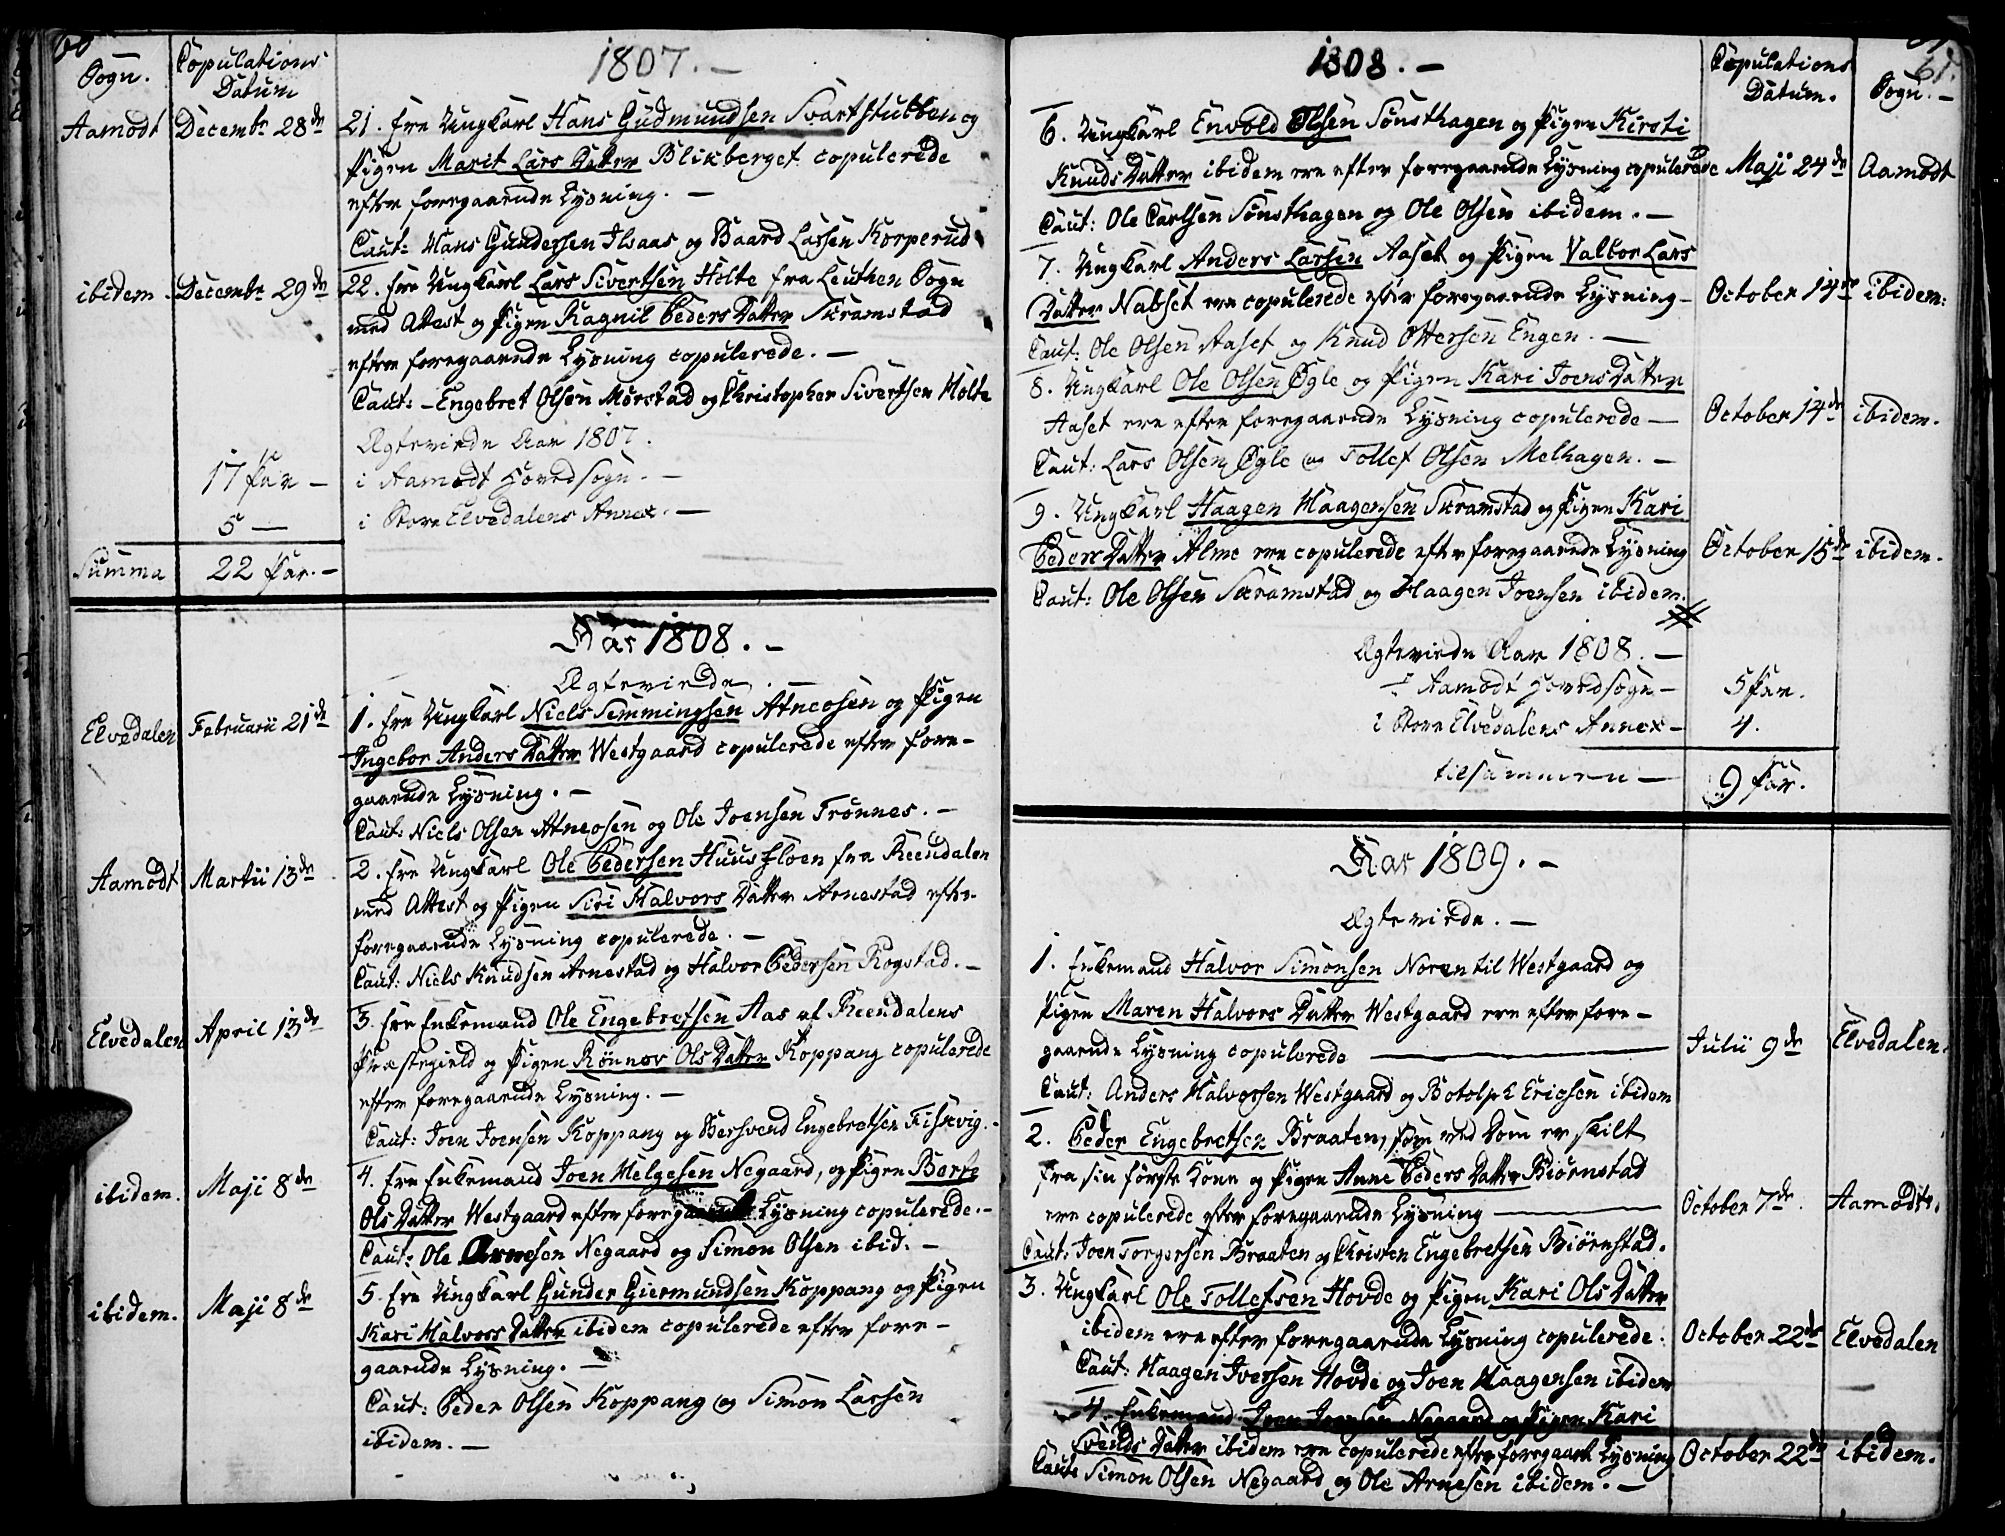 60
1807. —
Sogn.
Copulations
Datum
Aamodt
Decembr 28de
21. Ere Ungkarl Hans Gudmundsen Svartstubben og
Pigen Marit Lars Datter Blikberget copulerede
efter foregaaende Lysning. —
Caut: Hans Gundersen Ilsaas og Baard Larsen Korperud
ibidem
Decembr 29de
22. Ere Ungkarl Lars Sivertsen Holte fra Leuthen Sogn
med Attest og Pigen Ragnil Peders Datter Skramstad
efter foregaaende Lysning copulerede. —
Caut: - Engebret Olsen Mørstad og Christopher Sivertsen Holte
Ægteviede Aar 1807.
17 Par —
i Aamodt Hovedsogn. —
5 —
i Store Elvedalens Annex. —
Summa
22 Par. —
Aar 1808. —
Ægteviede. —
Elvedalen
Februarii 21de
1. Ere Ungkarl Niels Simmingsen Atneosen og Pigen
Ingebor Anders Datter Westgaard copulerede efter fore-
gaaende Lysning. —
Caut: Niels Olsen Atneosen og Ole Joensen Trønnes. —
Aamodt
Martii 13de
2. Ere Ungkarl Ole Pedersen Huusfloen fra Reendalen
med Attest og Pigen Siri Halvors Datter Arnestad efter
foregaaende Lysning copulerede. —
Caut: Niels Knudsen Arnestad og Halvor Pedersen Rogstad. —
Elvedalen
April 13de
3. Ere Enkemand Ole Engebretsen Aas af Reendalens
Præstegield og Pigen Rønnov Ols Datter Koppang copulerede
efter foregaaende Lysning. —
Caut: Joen Joensen Koppang og Bersvend Engebretsen Fiskvig. —
ibidem.
Maji 8de
4. Ere Enkemand Joen Helgesen Negaard, og Pigen Berte
Ols Datter Westgaard efter foregaaende Lysning copulerede. —
Caut: Ole Arnesen Negaard og Simon Olsen ibid. —
ibidem.
Maji 8de
5. Ere Ungkarl Gunder Giermundsen Koppang og Pigen
Kari Halvors Datter ibidem copulerede efter fore-
gaaende Lysning. —
Caut: Peder Olsen Koppang og Simon Larsen
ibidem. —
61.
1808. —
Copulations
Datum.
Sogn. —
6. Ungkarl Envold Olsen Sønsthagen og Pigen Kirsti
Knuds Datter ibidem ere efter foregaaende Lysning copulerede
Maji 24de
Aamodt
Caut: Ole Carlsen Sønsthagen og Ole Olsen ibidem. —
7. Ungkarl Anders Larsen Aaset og Pigen Valbor Lars
Datter Nabset ere copulerede efter foregaaende Lysning —
October 14de
ibidem:
Caut: Ole Olsen Aaset og Knud Ottersen Engen. —
8. Ungkarl Ole Olsen Øgle og Pigen Kari Joens Datter
Aaset ere efter foregaaende Lysning copulerede —
October 14de
ibidem.
Caut: Lars Olsen Øgle og Tollef Olsen Melhagen. —
9. Ungkarl Haagen Haagensen Skramstad og Pigen Kari
Peders Datter Alme ere copulerede efter foregaaende Lysning
October 15de
ibidem.
Caut: Ole Olsen Skramstad og Haagen Joensen ibidem.
Ægteviede Aar 1808. —
I Aamodt Hovedsogn —
5 Par.
i Store Elvedalens Annex —
4.
tilsammen —
9 Par.
Aar 1809. —
Ægteviede. —
1. Enkemand Halvor Simonsen Noren til Westgaard og
Pigen Maren Halvors Datter Westgaard ere efter fore-
gaaende Lysning copulerede —
Julii 9de
Elvedalen.
Caut: Anders Halvorsen Westgaard og Botolph Ericsen ibidem
2. Peder Engebretsen Braaten, som ved Dom er skilt
fra sin første Kone og Pigen Anne Peders Datter Biørnstad
ere copulerede efter foregaaende Lysning —
October 7de.
Aamodt.
Caut: Joen Torgersen Braaten og Christen Engebretsen Biørnstad.
3. Ungkarl Ole Tollefsen Hovde og Pigen Kari Ols Datter
ibidem ere efter foregaaende Lysning copulerede.
October 22de
Elvedalen
Caut: Haagen Iversen Hovde og Joen Haagensen ibidem
4. Enkemand Joen Joensen Negaard og Pigen Kari
Svends Datter ibidem ere copulerede efter foregaaende Lysning
October 22de
ibidem.
Caut: Simon Olsen Negaard og Ole Arnesen ibidem. —